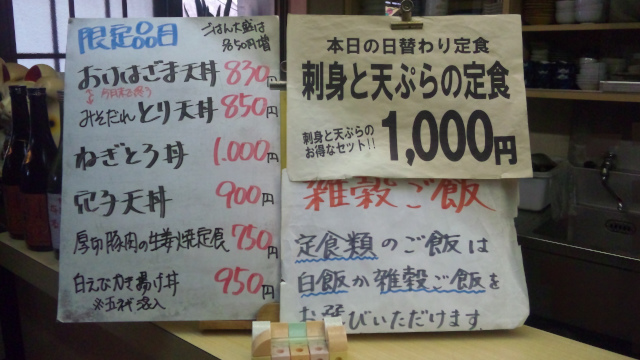 限定品目
ごはん大盛は
各50円増
おりはざま天丼 830円
みそだれとり天丼 850円
ねぎとろ丼 1.000円
穴子天丼 900円
厚切豚肉の生姜焼定食 750円
白えびかき揚げ丼 950円
本日の日替わり定食
刺身と天ぷらの定食
刺身と天ぷらの
お得なセット!!
1,000円
雑穀ご飯
定食類のご飯は
白飯か雑穀ご飯を
お選びいただけます